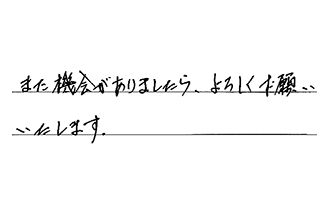 また機会がありましたら、よろしくお願い
いたします.